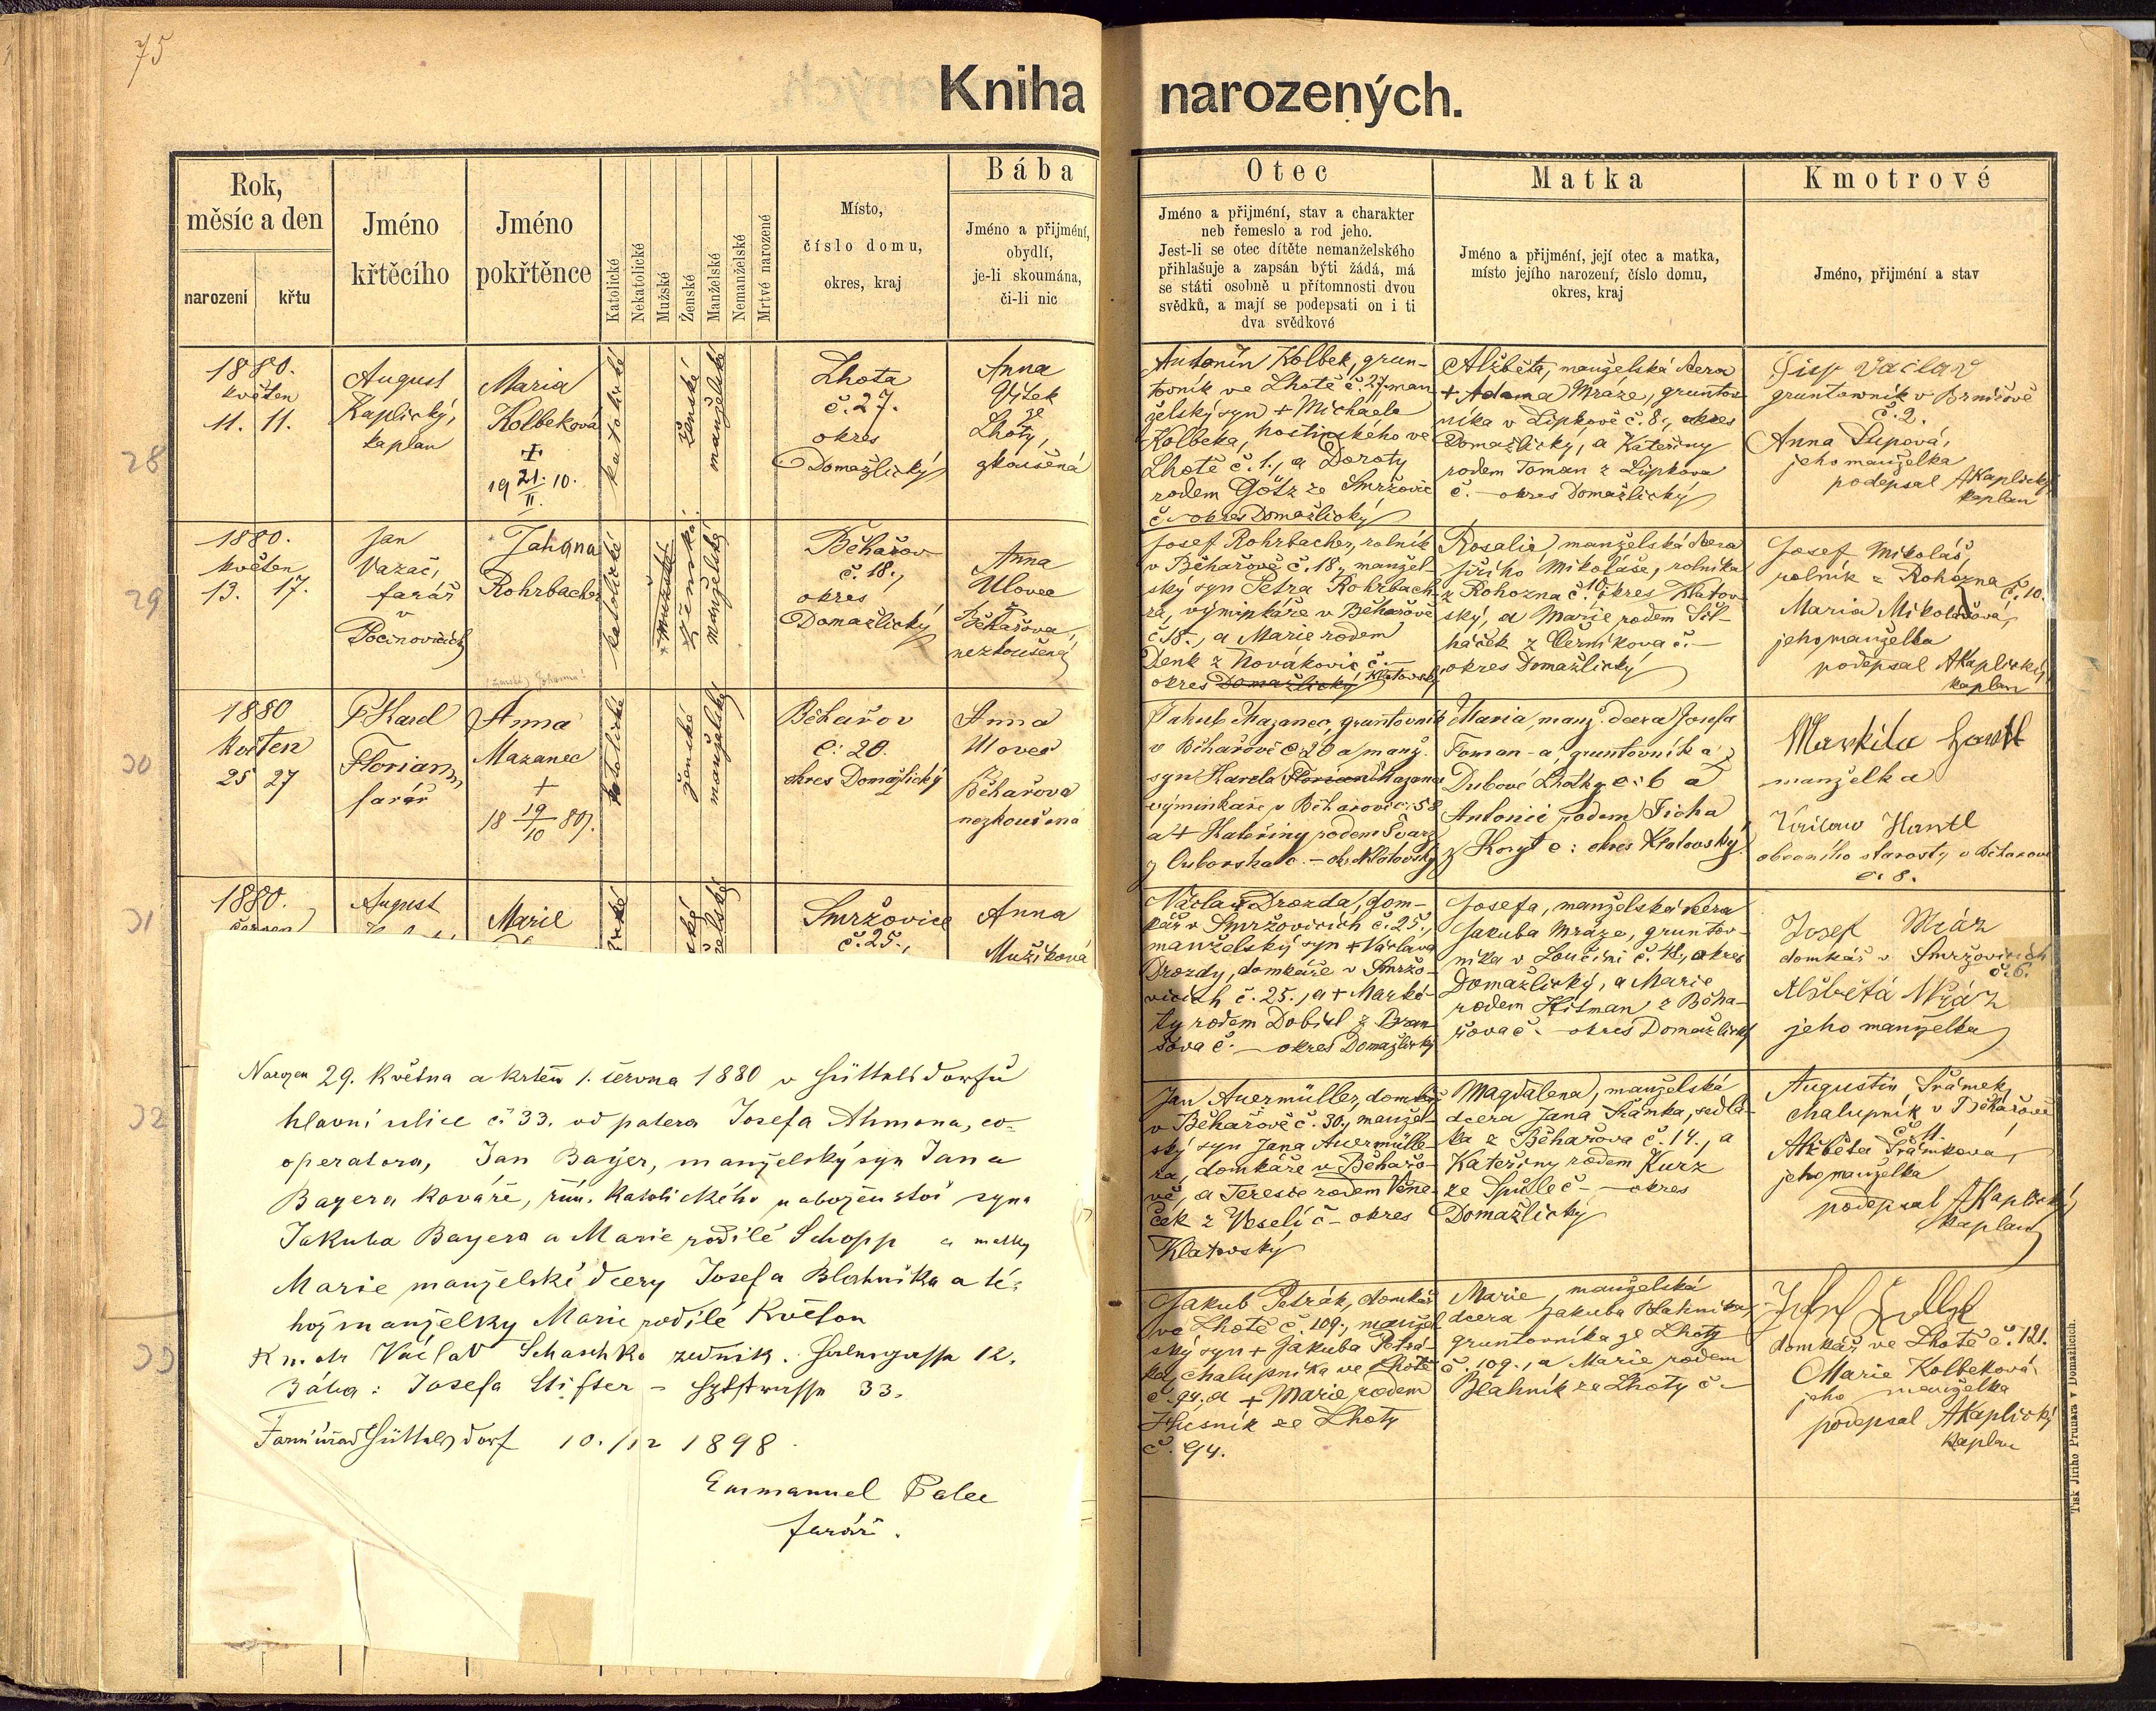 75
Kniha narozených.
Rok,
měsíc a den
narození
křtu
Jméno
křtěcího
Jméno
pokřtěnce
Katolické
Nekatolické
Mužské
Ženské
Manželské
Nemanželské
Mrtvé narozené
Místo,
číslo domu,
okres, kraj
Bába
Jméno a přijmení,
obydlí,
je-li skoumána,
či-li nic
Otec
Jméno a přijmení, stav a charakter
neb řemeslo a rod jeho.
Jest-li se otec dítěte nemanželského
přihlašuje a zapsán býti žádá, má
se státi osobně u přítomnosti dvou
svědků, a mají se podepsati on i ti
dva svědkové
Matka
Jméno a přijmení, její otec a matka,
místo jejího narození, číslo domu,
okres, kraj
Kmotrové
Jméno, přijmení a stav
28
1880.
květen
11. 11.
August
Kaplický,
kaplan
Maria
Kolbeková
+
19 21/II. 10.
katolické
ženské
manželské
Lhota
č. 27.
okres
Domažlický
Anna
ze
Lhoty,
zkoušená
Antonín Kolbek, grun-
tovník ve Lhotě č. 27, man
želský syn + Michaela
Kolbeka, hostinského ve
Lhotě č. 1., a Doroty
rodem Götz ze Smržovic
č. – okres Domažlický
Alžběta, manželská dcera
+ Adama Mráze, gruntov
níka v Lipkově č. 8., okres
Domažlický, a Kateřiny
rodem Toman z Lipkova
č. – okres Domažlický
Václav
gruntovník v
č. 2.
Anna
jeho manželka
podepsal AKaplický
kaplan
29
1880.
květen
13. 17.
Jan
Vazač,
farář
v
Pocinovicích
Johana
Rohrbacher
katolické
mužské
ženské
manželské
Běhařov
č. 18.,
okres
Domažlický
Anna
Ulovec
z
Běhařova,
nezkoušená
Josef Rohrbacher, rolník
v Běhařově č. 18., manžel-
ský syn Petra Rohrbach-
ra, výminkáře v Běhařově
č. 18., a Marie rodem
Denk z Novákovic č. –
okres Domažlický Klatovský
Rosalie, manželská dcera
Jiřího Mikoláše, rolníka
z Rohozna č. 10., okres Klatov
ský, a Marie rodem
z Černíkova č. –
okres Domažlický
Josef Mikoláš,
rolník z Rohozna č. 10.
Maria Mikolášová,
jeho manželka
podepsal AKaplický,
kaplan
30
1880
květen
25 27
P. Karel
Florian,
farář
Anna
Mazanec
+
18 19/10 80.
katolické
ženské
manželské
Běhařov
č: 20.
okres Domažlický
Anna
Ulovec
z
Běhařova
nezkoušená
Jakub Mazanec, gruntovník
v Běhařově č: 20 a manž.
syn Karla Florian Mazance
výminkáře v Běhařově č: 58
a + Kateřiny rodem Švarz
z č. – okr. Klatovský
Maria, manž. dcera Josefa
Toman-a, gruntovníka z
Dubové Lhotky č: 6 a
Antonie rodem Ticha
z Koryt č: okres Klatovský
Markita Hantl
manželka
Václav Hantl
obecního starosty v Běhařově
č. 8.
31
1880.
červen
August
Marie
Smržovice
č. 25.,
Anna
Mužíková
Václav Drozda, dom-
kář v Smržovicích č. 25.,
manželský syn + Václava
Drozdy, domkáře v Smržo-
vicích č. 25., a + Marké-
ty rodem Dobiel z Bran
šova č. – okres Domažlický
Josefa, manželská dcera
Jakuba Mráze, gruntov-
níka v Loučimi č. 4., okres
Domažlický, a Marie
rodem Hitman z Běha-
řova č. – okres Domažlický
Josef Mráz
domkář v Smržovicích
č. 6.
Alžběta Mráz
jeho manželka
32
Jan Auermüller, domkář
v Běhařově č. 30., manžel-
ský syn Jana Auermülle-
ra, domkáře v Běhařo-
vě, a Terezie rodem Věne-
ček z Veselí č – okres
Klatovský
Magdalena, manželská
dcera Jana Šrámka, sedlá-
ka z Běhařova č. 14., a
Kateřiny rodem Kurz
ze Spůle č – okres
Domažlický
Augustin Šrámek,
chalupník v Běhařově
č. 11.
Alžběta Šrámkova,
jeho manželka
podepsal AKaplický
kaplan
33
Jakub Petrák, domkář
ve Lhotě č. 109., manžel
ský syn + Jakuba Petrá-
ka, chalupníka ve Lhotě
č. 94. a + Marie rodem
Husník ze Lhoty
č. 94.
Marie, manželská
dcera Jakuba Blahníka,
gruntovníka ze Lhoty
č. 109., a Marie rodem
Blahník ze Lhoty č –
Josef
domkář ve Lhotě č. 121.
Marie Kolbeková
jeho manželka
podepsal AKaplický
kaplan
Narozen 29. Května a krtěn 1. června 1880 v Hüttelsdorfu
hlavní ulice č: 33. od patera Josefa Ahmona, co-
operatora, Jan Bayer, manželský syn Jana
Bayera kováře, řím. katolického náboženství syna
Jakuba Bayera a Marie rodilé Schopp a matky
Marie manželské dcery Josefa Blahníka a té-
hož manželky Marie rodilé Květon
Kmotr Václav Schaschko zedník. 12.
Bába: Josefa Stifter – 33.
Farní úřad Hüttelsdorf 10./12 1898.
Emmanuel Palee
farář.
Tisk Jiřího Prunara v Domažlicích.